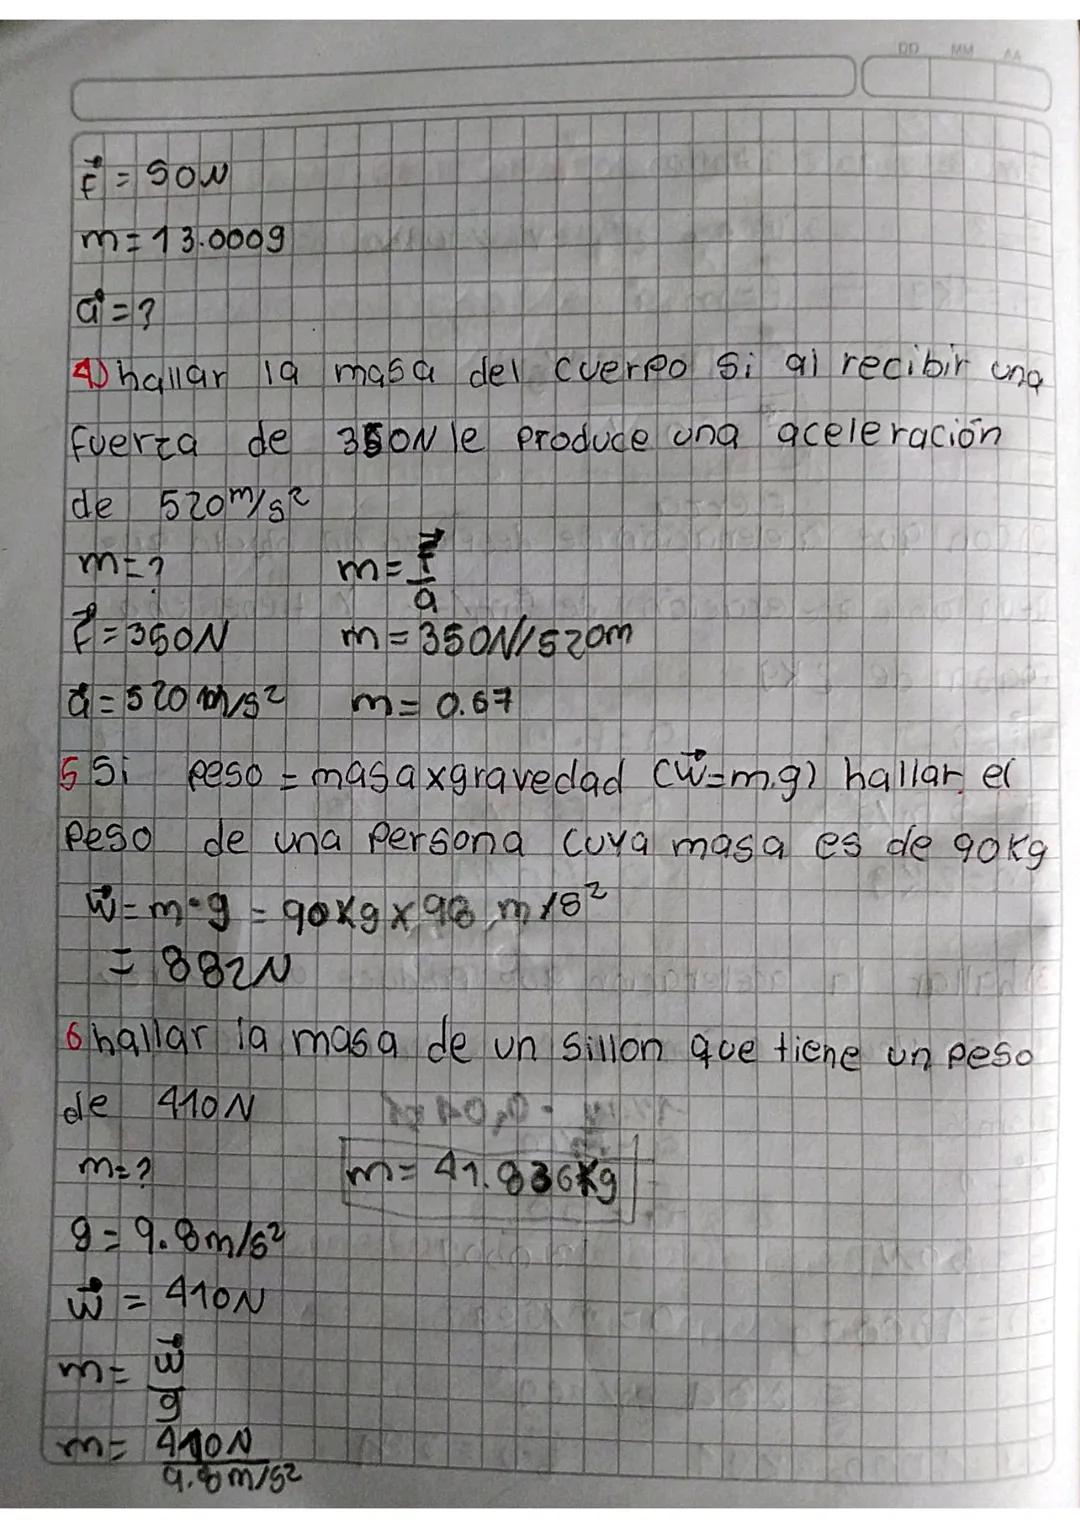 DD MM AA
F = 50N
m = 13.000g
a = ?
4) hallar la masa del cuerpo si al recibir una
fuerza de 350N le produce una aceleración
de 520m/s²
m = ? m = F/a
F = 350N m = 350N/520m
a = 520 m/s² m = 0.67
5 Si peso = masa x gravedad (w = m.g) hallar el
peso de una persona cuya masa es de 90kg
w = m · g = 90kg x 98 m/s²
= 882N
6 hallar la masa de un sillon que tiene un peso
de 410N
m = ? m = 41.836kg
g = 9.8m/s²
w = 410N
m = w/g
m = 410N/9.8m/s²